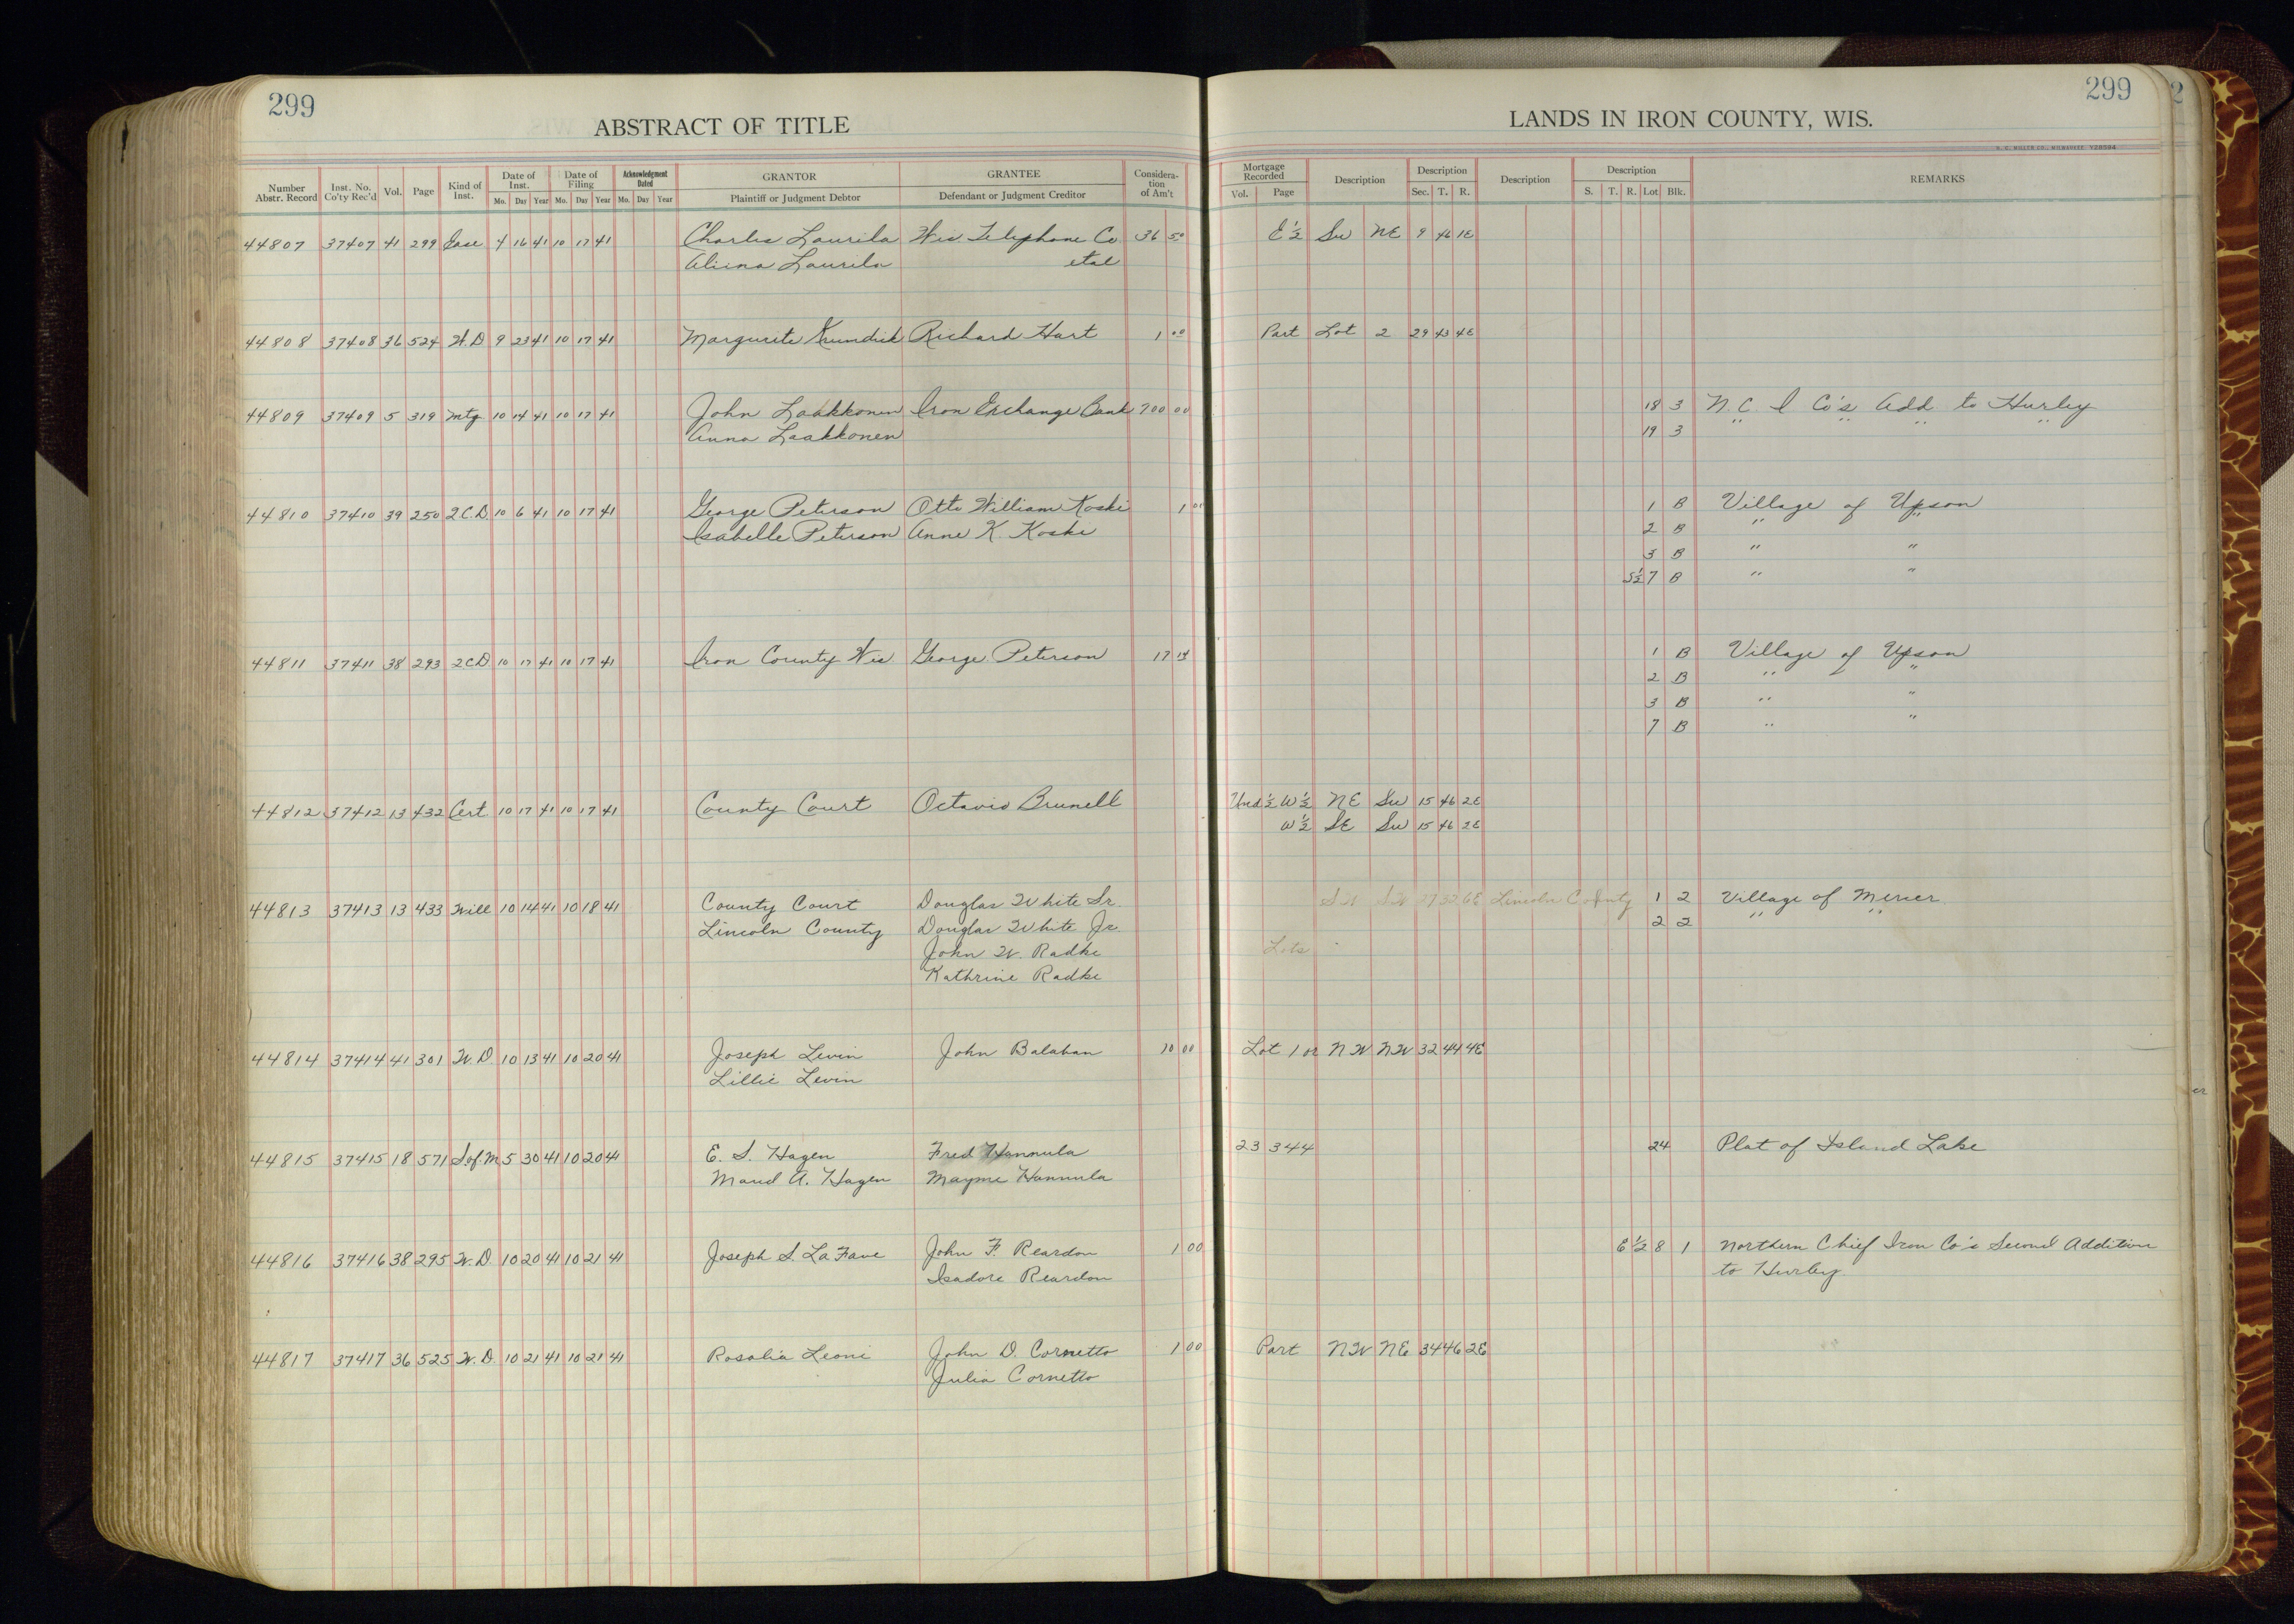 299
ABSTRACT OF TITLE
Number Abstr. Record | Inst. No. Co'ty Rec'd | Vol. | Page | Kind of Inst. | Date of Inst. Mo. Day Year | Date of Filing Mo. Day Year | Acknowledgment Dated Mo. Day Year | GRANTOR Plaintiff or Judgment Debtor | GRANTEE Defendant or Judgment Creditor | Consideration of Am't
44807 37407 41 299 Ease 4 16 41 10 17 41 Charles Laurila Wis. Telephone Co 36 50
Aliina Laurila etal
44808 37408 36 524 W.D 9 23 41 10 17 41 Margurite Krundick Richard Hart 1 00
44809 37409 5 319 Mtg 10 14 41 10 17 41 John Laakkonen Iron Exchange Bank 700 00
Anna Laakkonen
44810 37410 39 250 2.C.D. 10 6 41 10 17 41 George Peterson Otto William Koski 1 00
Isabelle Peterson Anne K. Koski
44811 37411 38 293 2CD 10 17 41 10 17 41 Iron County Wis George Peterson 17 14
44812 37412 13 432 Cert. 10 17 41 10 17 41 County Court Octavio Brunell
44813 37413 13 433 Will 10 14 41 10 18 41 County Court Douglas White Sr.
Lincoln County Douglas White Jr
John W. Radke
Kathrine Radke
44814 37414 41 301 W.D. 10 13 41 10 20 41 Joseph Levin John Balaban 10 00
Lillie Levin
44815 37415 18 571 S.of.M 5 30 41 10 20 41 E. S. Hagen Fred Hannula
Maud A. Hagen Mayme Hannula
44816 37416 38 295 W.D. 10 20 41 10 21 41 Joseph S. LaFave John F. Reardon 1 00
Isadore Reardon
44817 37417 36 525 W.D. 10 21 41 10 21 41 Rosalia Leoni John D. Cornetto 1 00
Julia Cornetto
299
LANDS IN IRON COUNTY, WIS.
H. C. MILLER CO., MILWAUKEE
Mortgage Recorded Vol. Page | Description | Description Sec. T. R. | Description | Description S. T. R. Lot Blk. | REMARKS
E½ SW NE 9 46 1E
Part Lot 2 29 43 4E
18 3 N.C. I Co's Add to Hurley
19 3 " " " "
1 B Village of Upson
2 B " "
3 B " "
S½ 7 B " "
1 B Village of Upson
2 B " "
3 B " "
7 B " "
Und ½ W½ NE SW 15 46 2E
W½ SE SW 15 46 2E
SW SW 27 32 6E Lincoln County 1 2 Village of Mercer
2 2 " "
Lots
Lot 1 or NW NW 32 44 4E
23 344 24 Plat of Island Lake
E½ 8 1 Northern Chief Iron Co's Second Addition
to Hurley.
Part NW NE 34 46 2E